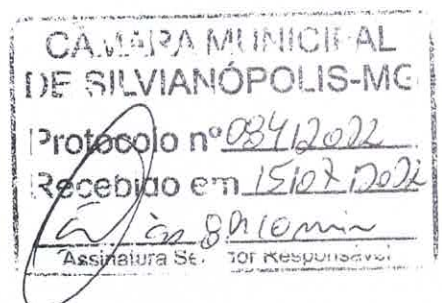 CÂMARA MUNICIPAL
DE SILVIANÓPOLIS-MG
Protocolo nº 084/2022
Recebido em 15/07/2022
às 8h10min
Assinatura Se. Responsável